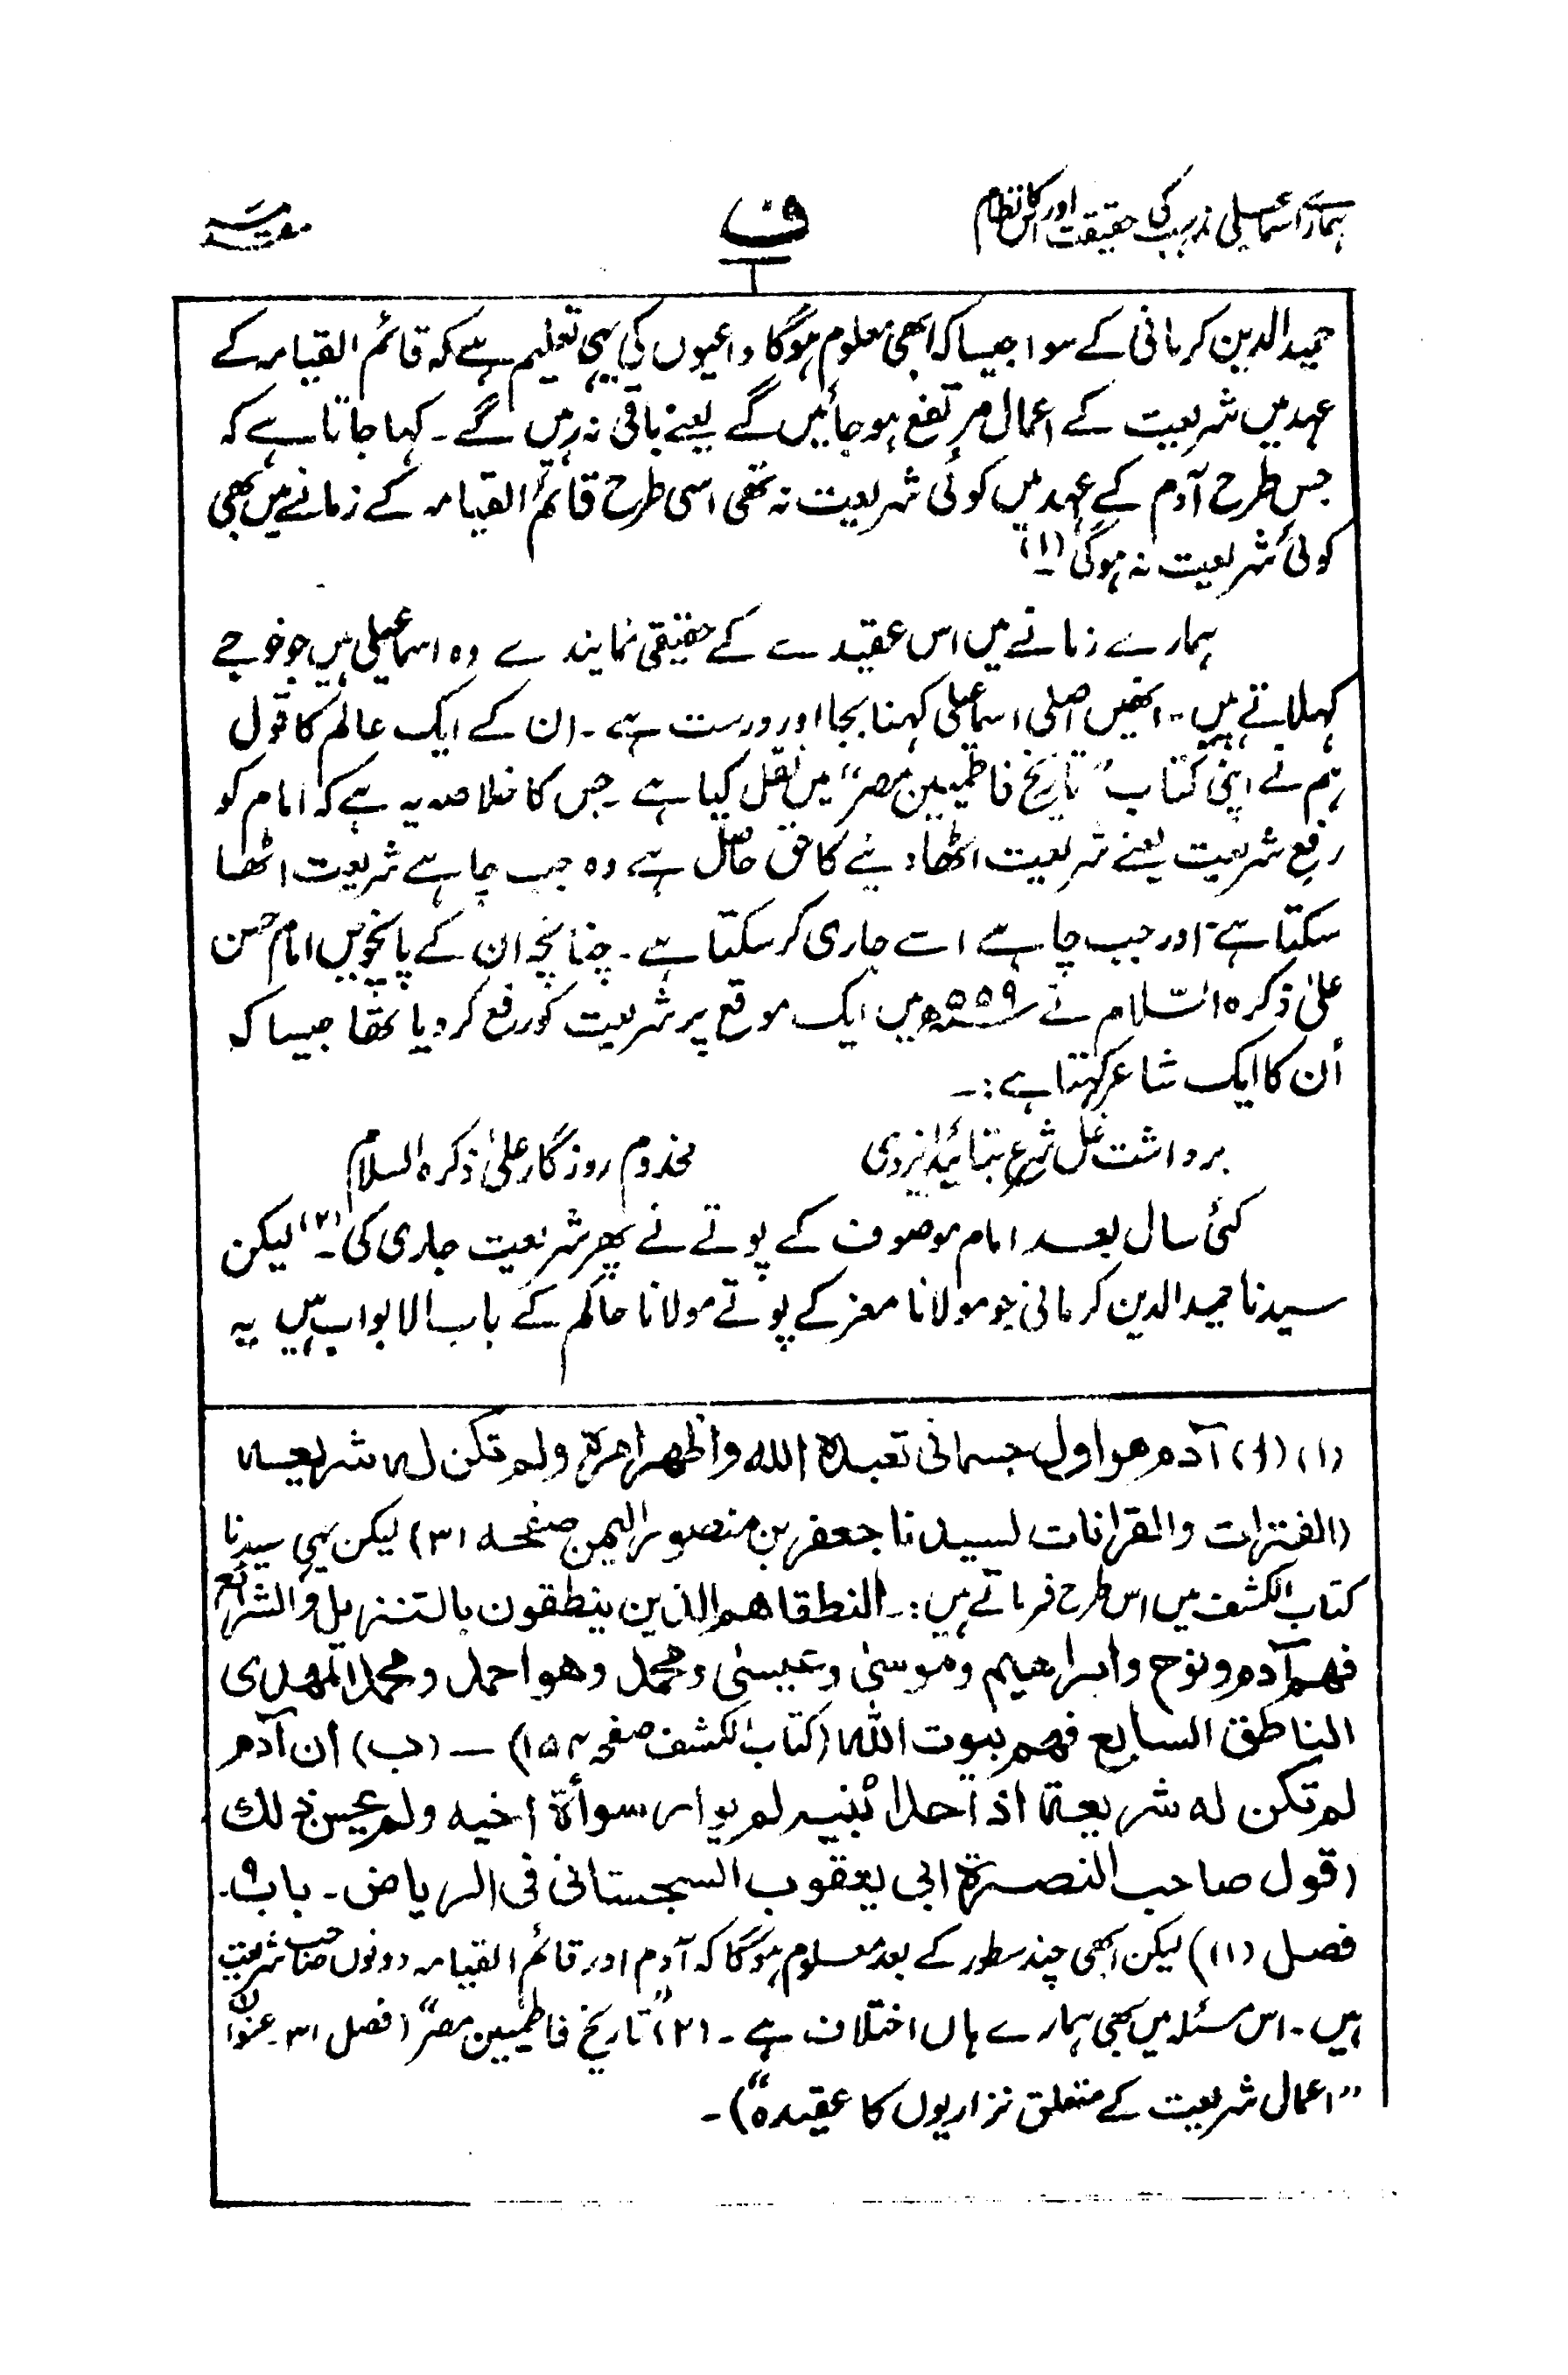 ہمارے اسماعیلی مذہب کی حقیقت اور اس کا نظام
ف
مقدمہ
حمید الدین کرمانی کے سوا جیسا کہ ابھی معلوم ہوگا داعیوں کی یہی تعلیم ہے کہ قائم القیامہ کے
عہد میں شریعت کے اعمال مرتفع ہو جائیں گے یعنے باقی نہ رہیں گے ۔ کہا جاتا ہے کہ
جس طرح آدم کے عہد میں کوئی شریعت نہ تھی اسی طرح قائم القیامہ کے زمانے میں بھی
کوئی شریعت نہ ہوگی (۱)
ہمارے زمانے میں اس عقیدے کے حقیقی نمایندے وہ اسماعیلی ہیں جو خوجے
کہلاتے ہیں ۔ انھیں اصلی اسماعیلی کہنا بجا اور درست ہے ۔ ان کے ایک عالم کا قول
ہم نے اپنی کتاب "تاریخ فاطمیین مصر" میں نقل کیا ہے ۔ جس کا خلاصہ یہ ہے کہ امام کو
رفع شریعت یعنے شریعت اٹھا دینے کا حق حاصل ہے وہ جب چاہے شریعت اٹھا
سکتا ہے اور جب چاہے اسے جاری کر سکتا ہے ۔ چنانچہ ان کے پانچویں امام حسن
علیٰ ذکرہ السّلام نے ۵۵۹ھ میں ایک موقع پر شریعت کو رفع کر دیا تھا جیسا کہ
اُن کا ایک شاعر کہتا ہے :۔
برداشت غل شرع بتائید ایزدی مخدوم روزگار علیٰ ذکرہ السلام
کئی سال بعد امام موصوف کے پوتے نے پھر شریعت جاری کی ۔(۲) لیکن
سیدنا حمید الدین کرمانی جو مولانا معز کے پوتے مولانا حاکم کے باب الابواب ہیں یہ
(۱) (ا) آدم هو اول جسمانی تعبده الله واظهر امره ولم تكن له شریعه
(الفترات والقرانات لسیدنا جعفر بن منصور الیمن صفحه ۳۱) لیکن یہی سیدنا
کتاب الکشف میں اس طرح فرماتے ہیں :۔ النطقا هم الذین ینطقون بالتنزیل والشرائع
فهم آدم ونوح وابراهیم وموسیٰ وعیسیٰ ومحمد وهو احمد ومحمد المهدی
الناطق السابع فهم بیوت الله (کتاب الکشف صفحہ ۱۵۴) ــ (ب) أن آدم
لم تكن له شریعة اذ احد ابنیه لم یوار سوأة اخیه ولم یحسن ذلك
(قول صاحب النصرة ابی یعقوب السجستانی فی الریاض ۔ باب ۹۔
فصل (۱۱) لیکن ابھی چند سطور کے بعد معلوم ہوگا کہ آدم اور قائم القیامہ دونوں صاحب شریعت
ہیں ۔ اس مسئلہ میں بھی ہمارے ہاں اختلاف ہے ۔ (۲) "تاریخ فاطمیین مصر" (فصل ۳۱ عنوان
"اعمال شریعت کے متعلق نزاریوں کا عقیدہ") ۔